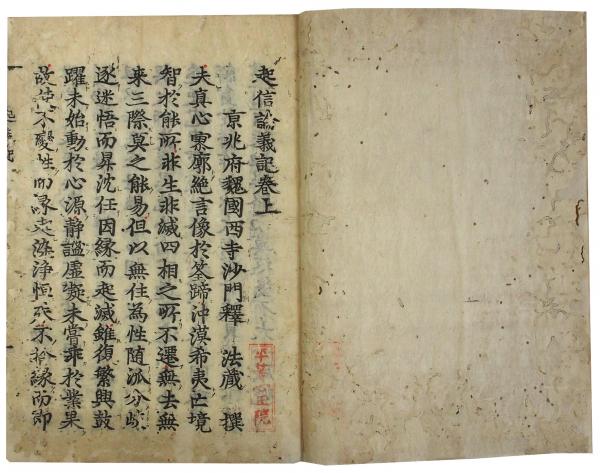 起信論義記卷上
京兆府魏國西寺沙門釋 法藏 撰
夫真心寥廓絶言像於筌蹄沖漠希夷亡境
智於能所非生非滅四相之所不遷無去無
来三際莫之能易但以無住為性随派分岐
逐迷悟而昇沈任因縁而起滅雖復繁興鼓
躍未始動於心源静謐虚凝未嘗乖於業果
故使不變性而縁起染淨恒殊不捨縁而即